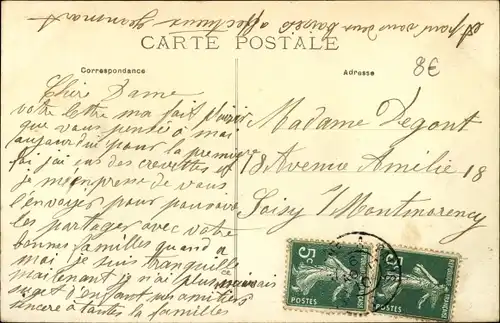 et pour vous deux baisers affectueux
CARTE POSTALE
8€
Correspondance
Adresse
Chère Dame
votre lettre ma fait plaisir
que vous pensé a moi
aujourdui pour la premiere
foi j'ai eus des crevettes et
je m'enpresse de vous
l'envoyer pour pouvoir
les partager avec votre
bonnes familles quand a
moi je suis tranquille
maitenant j'n'ai plus ce mauvais
suget d'enfant mes amitiers
sincere a toutes la familles
Madame Degont
18 Avenue Amélie 18
Soisy s/ Montmorency
5c
POSTES
5c
POSTES